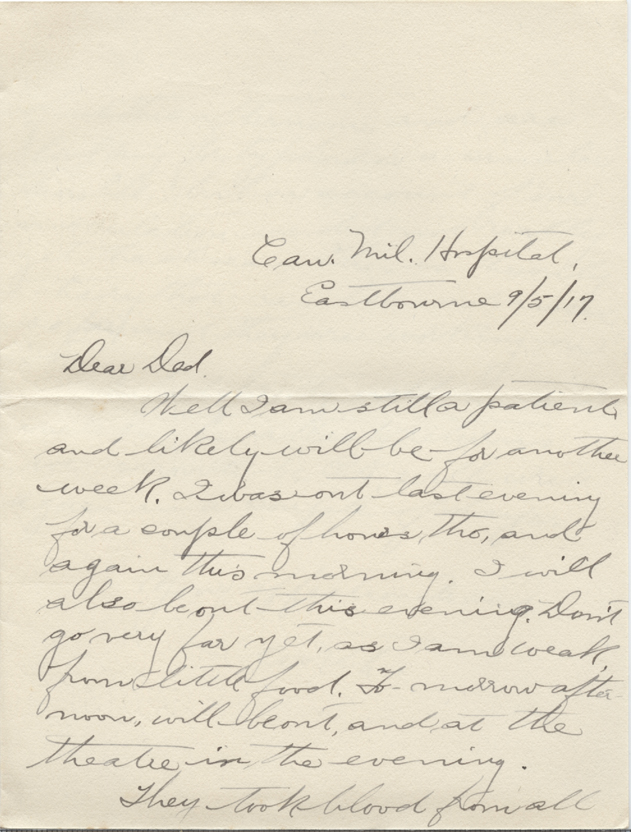 Can. Mil. Hospital,
Eastbourne 9/5/17.
Dear Dad.
Well I am still a patient,
and likely will be for another
week. I was out last evening
for a couple of hours, tho, and
again this morning. I will
also be out this evening. Don't
go very far yet, as I am weak,
from little food. To-morrow after-
noon, will be out, and at the
theatre in the evening.
They took blood from all